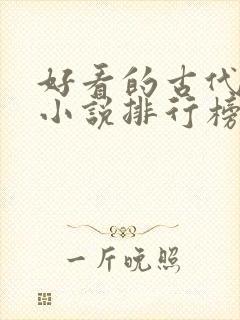 好看的古代
小说排行榜
一斤晚照